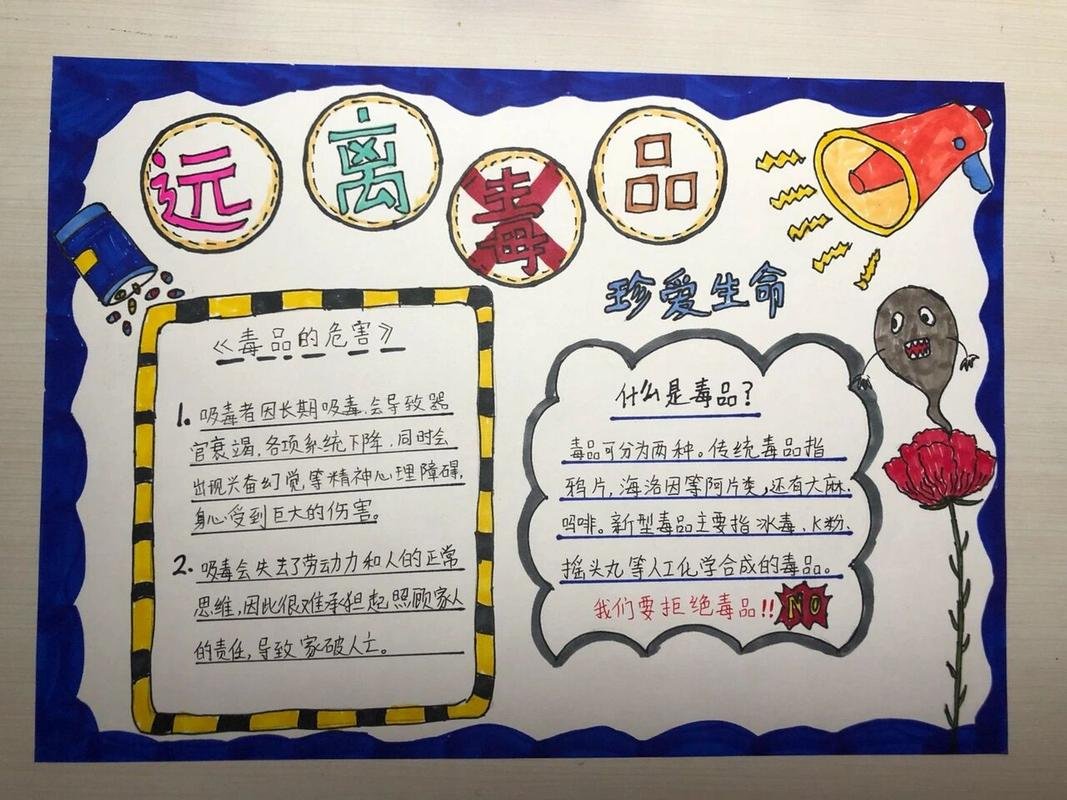 远离毒品
珍爱生命
《毒品的危害》
1. 吸毒者因长期吸毒,会导致器
官衰竭,各项系统下降,同时会
出现兴奋幻觉等精神心理障碍,
身心受到巨大的伤害。
2. 吸毒会失去了劳动力和人的正常
思维,因此很难承担起照顾家人
的责任,导致家破人亡。
什么是毒品?
毒品可分为两种。传统毒品指
鸦片,海洛因等阿片类,还有大麻、
吗啡。新型毒品主要指冰毒、K粉、
摇头丸等人工化学合成的毒品。
我们要拒绝毒品!! NO